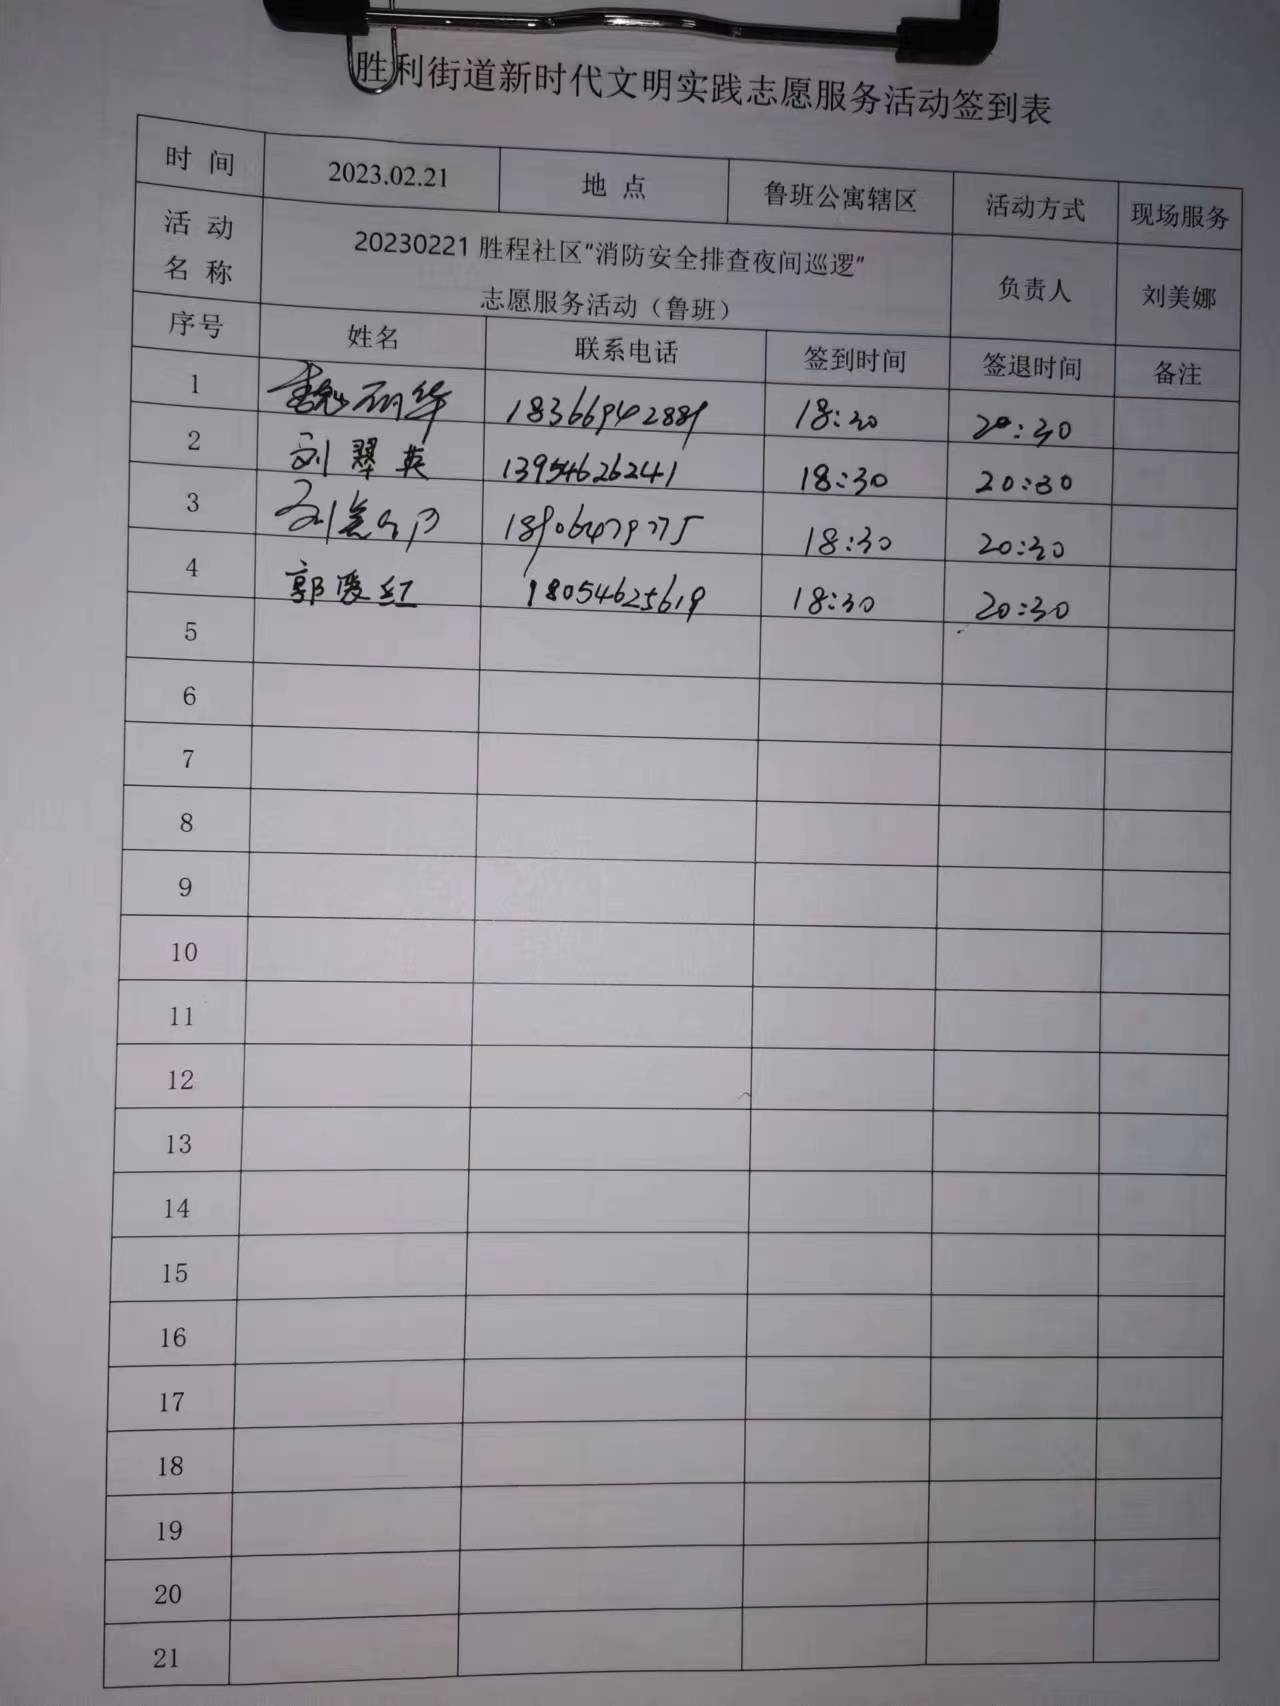 胜利街道新时代文明实践志愿服务活动签到表
时 间 2023.02.21 地 点 鲁班公寓辖区 活动方式 现场服务
活 动 名 称 20230221 胜程社区“消防安全排查夜间巡逻” 志愿服务活动（鲁班） 负责人 刘美娜
序号 姓名 联系电话 签到时间 签退时间 备注
1 丽华 18366942889 18:30 20:30
2 刘翠英 13954626241 18:30 20:30
3 刘 18:30 20:30
4 郭爱红 18054625619 18:30 20:30
5
6
7
8
9
10
11
12
13
14
15
16
17
18
19
20
21